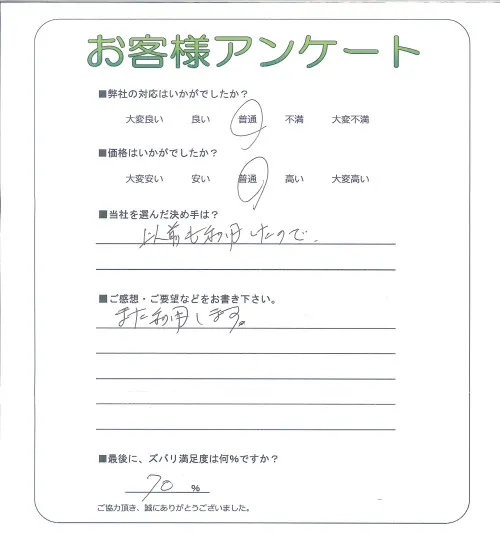 お客様アンケート
■弊社の対応はいかがでしたか？
大変良い　良い　普通　不満　大変不満
■価格はいかがでしたか？
大変安い　安い　普通　高い　大変高い
■当社を選んだ決め手は？
以前も利用したので、
■ご感想・ご要望などをお書き下さい。
また利用します。
■最後に、ズバリ満足度は何％ですか？
70 ％
ご協力頂き、誠にありがとうございました。